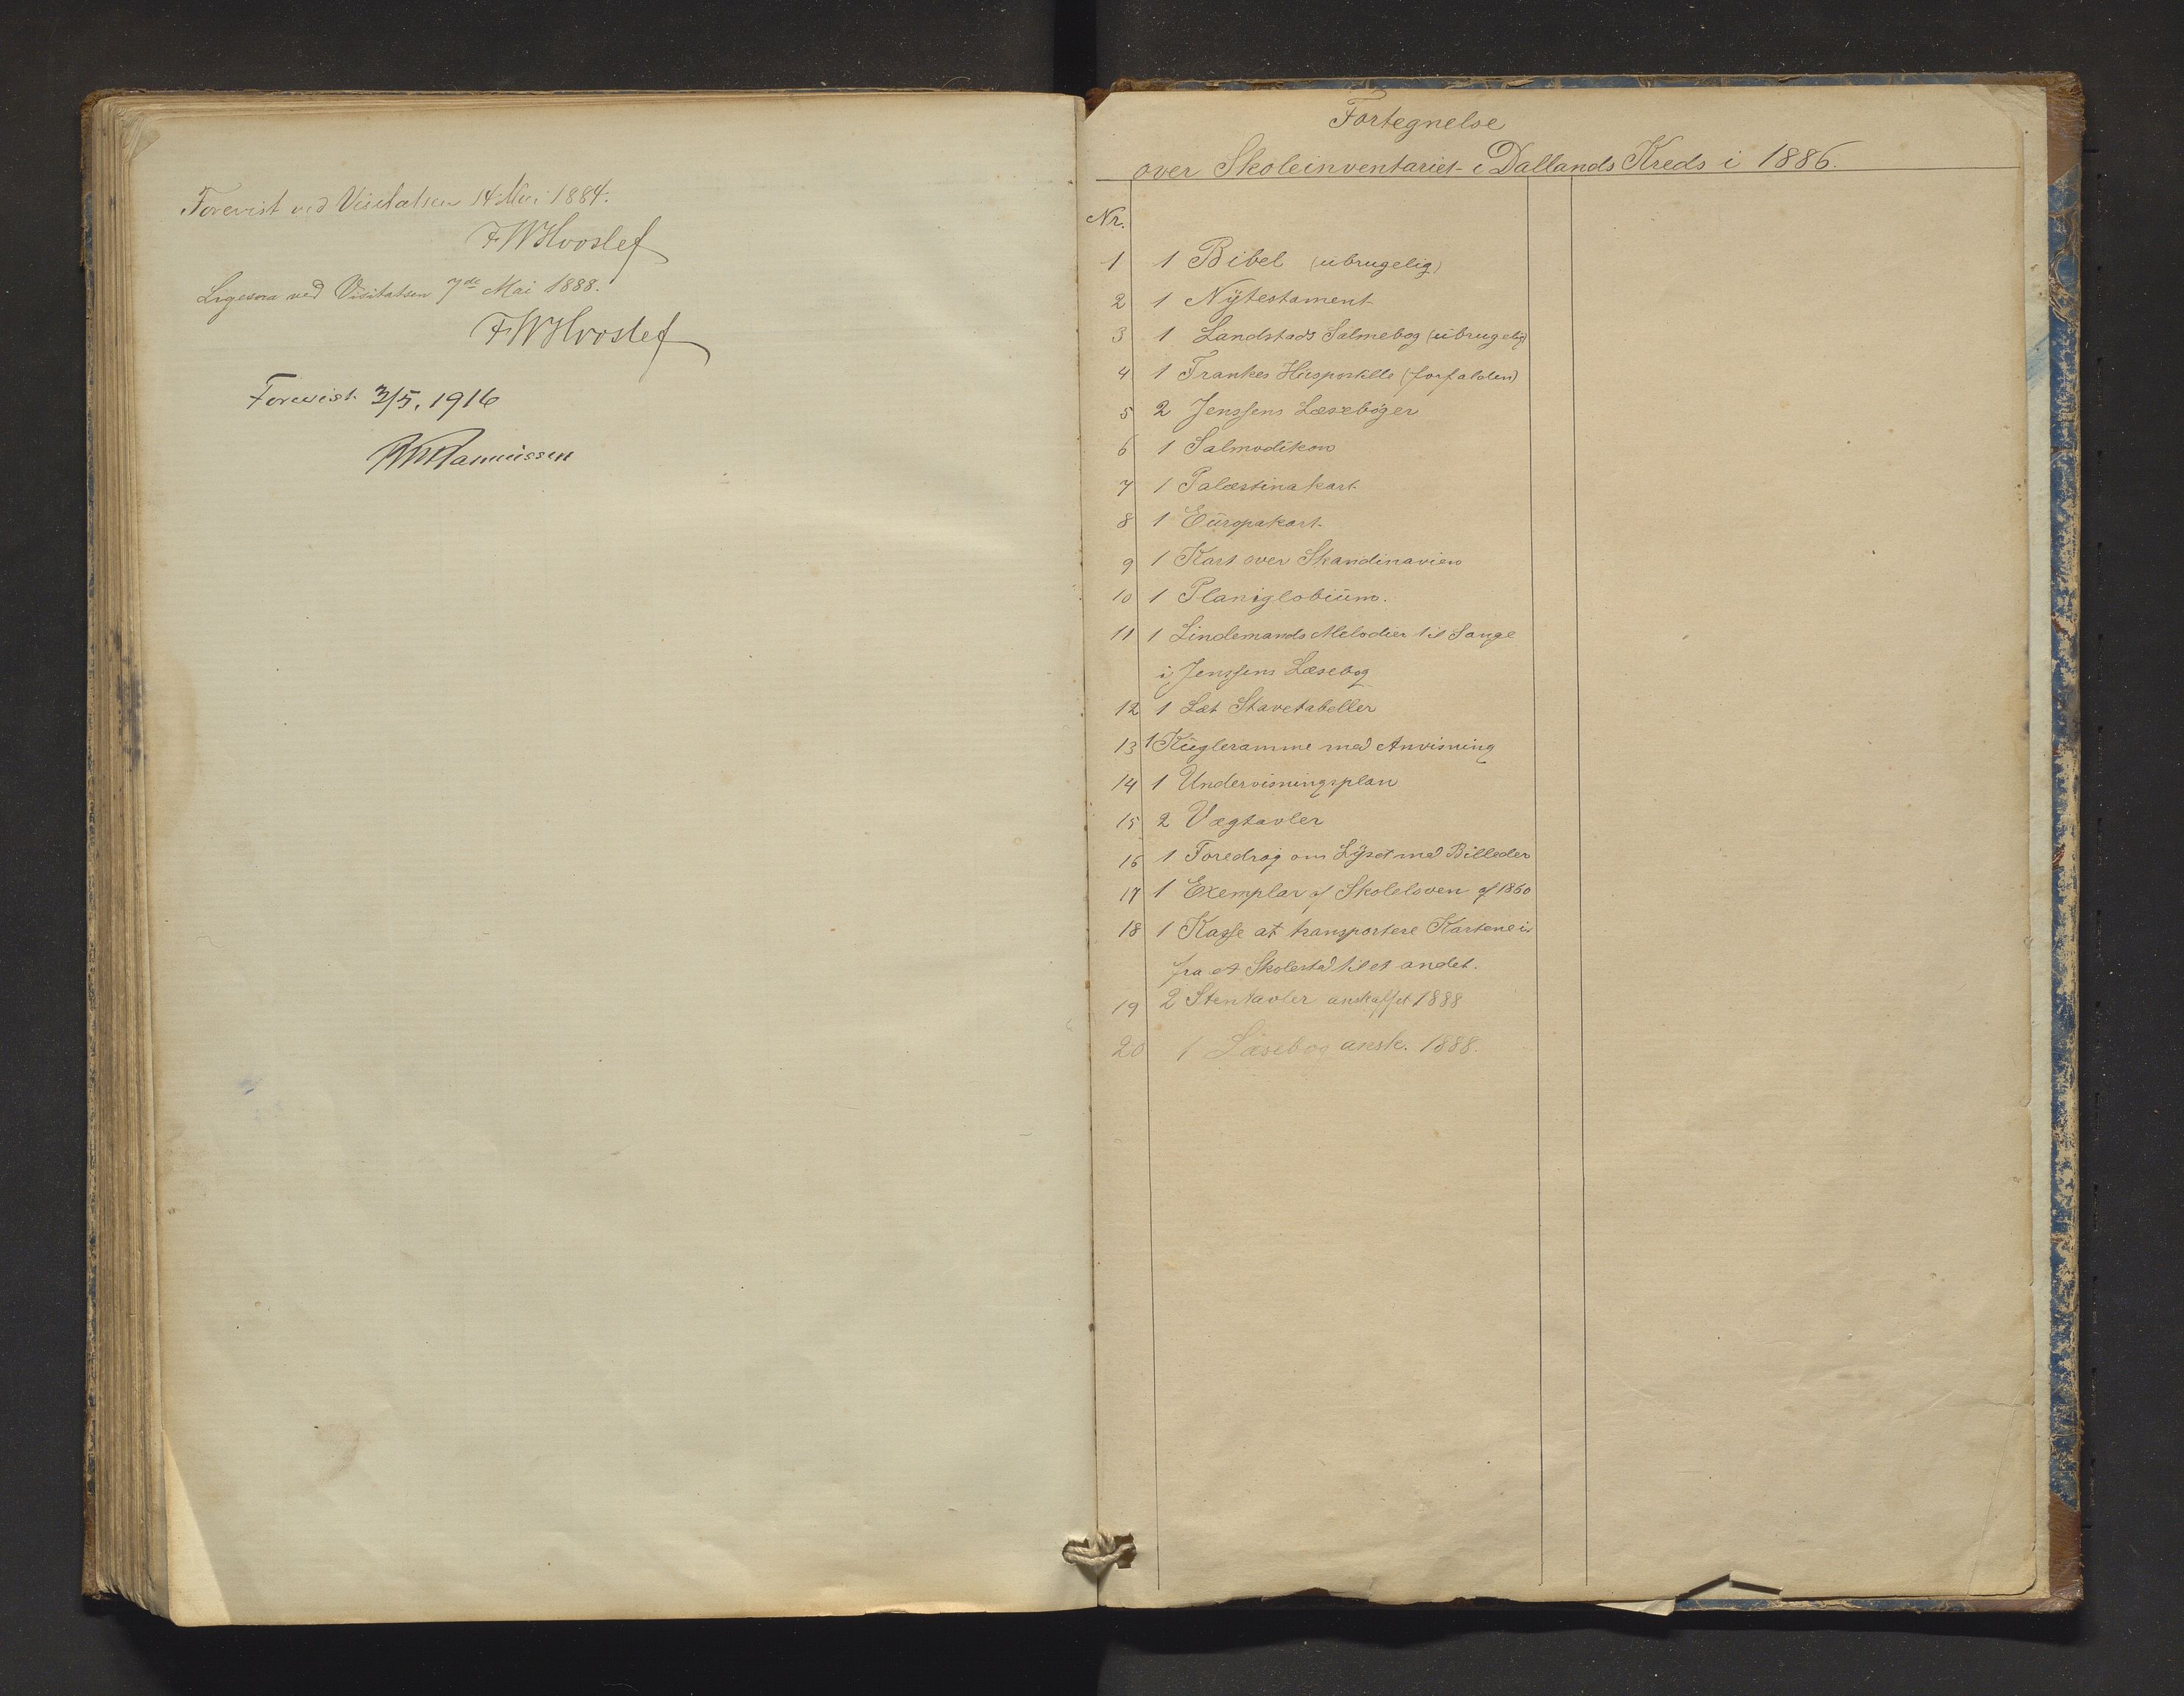 Forevist ved Visitatsen 14 Mai 1884.
FWHvoslef
Ligesaa ved Visitatsen 7de Mai 1888.
FWHvoslef
Forevist 3/5. 1916
Rasmussen
Fortegnelse
over Skoleinventariet i Dallands Kreds i 1886.
Nr.
1 1 Bibel (ubrugelig)
2 1 Nytestament
3 1 Landstads Salmebog (ubrugelig)
4 1 Frankes Huspostille (forfalden)
5 2 Jenssens Læsebøger
6 1 Salmodikon
7 1 Palæstinakart
8 1 Europakart
9 1 Kart over Skandinavien
10 1 Planiglobium.
11 1 Lindemands Melodier til Sange
i Jenssens Læsebog
12 1 Sæt Stavetabeller
13 1 Kugleramme med Anvisning
14 1 Undervisningsplan
15 2 Vægtavler
16 1 Foredrag om Lyset med Billeder
17 1 Exemplar af Skoleloven af 1860
18 1 Kasse at transportere Kartene i
fra et Skolested til et andet.
19 2 Stentavler anskaffet 1888
20 1 Læsebog ansk. 1888.